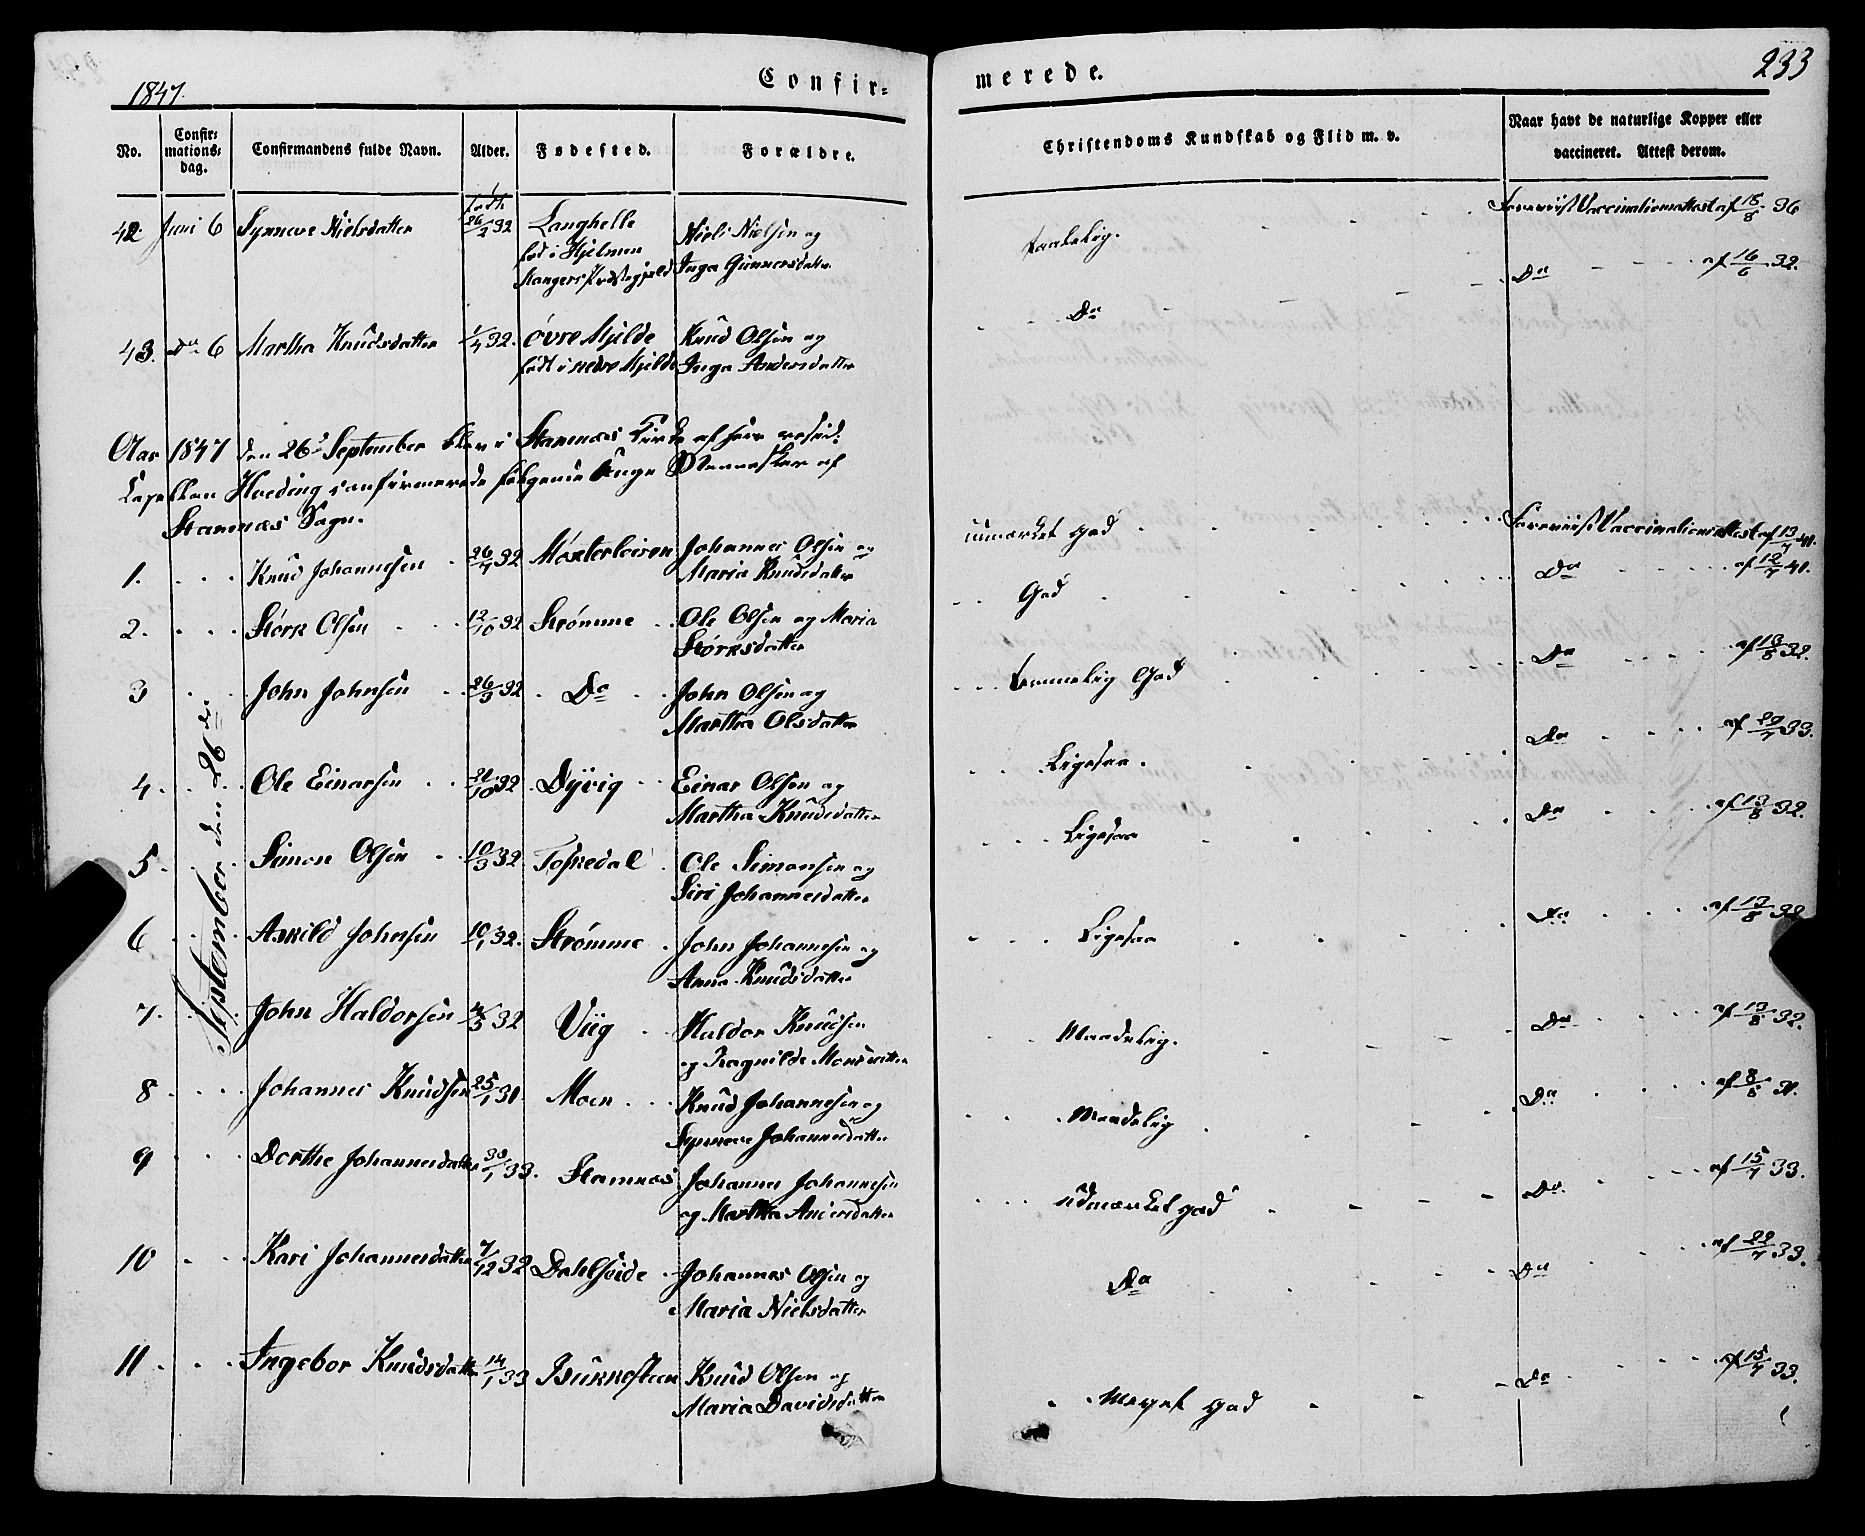 1847.
Confir=
merede.
233
No.
Confir=
mations=
dag.
Confirmandens fulde Navn.
Alder.
Fødested.
Forældre.
Christendoms Kundskab og Flid m. v.
Naar havt de naturlige Kopper eller
vaccineret. Attest derom.
42 Juni 6 Synneve Nielsdatter født 26/2 32 Langhelle Niels Nielsen og taalelig. Foreviist Vaccinationsattest af 18/8 36
fød i Hjelmen Inga Gunnarsdatter
Mangers Præstegjeld
43. Do 6 Martha Knudsdatter 1/4 32. øvre Mjelde Knud Olsen og Do Do af 16/6 32.
født i nedre Mjelde Inga Andersdatter
Aar 1847 den 26d September blev i Stamnæs Kirke af Herr resid:
Capellan Hoeding confirmerede følgende Unge Mennesker af
Stamnæs Sogn.
September den 26de
1. Knud Johannesen 26/7 32 Møxterleiren Johannes Olsen og udmærket god Foreviist Vaccinationsattest af 13/7 41.
Maria Knudsdatter
2. Størk Olsen 12/10 32 Strømme Ole Olsen og Maria God Do af 12/7 41.
Størksdatter
3 John Johnsen 26/3 32 Do John Olsen og temmelig God Do af 13/8 32.
Martha Olsdatter
4. Ole Einarsen 21/10 32 Dyvig Einar Olsen og Ligesaa. Do af 20/7 33.
Martha Knudsdatter
5. Simon Olsen 10/3 32 Toskedal Ole Simonsen og Ligesaa Do af 13/8 32.
Siri Johannesdatter
6 Askild Johnsen 10/1 32. Strømme John Johannesen og Ligesaa Do af 13/8 32
Anna Knudsdatter
7. John Haldorsen 4/5 32 Viig Haldor Knudsen Maadelig. Do af 13/8 32.
og Ragnilde Monsdatter
8 Johannes Knudsen 25/1 31. Moen Knud Johannesen og Maadelig Do af 8/8 31.
Synneve Johannesdatter
9 Dorthe Johannesdatter 30/1 33. Stamnæs Johannes Johannesen udmærket god Do. af 15/7 33.
og Martha Andersdatter
10 Kari Johannesdatter 7/12 32 Dahlseide Johannes Olsen og Do Do af 22/7 33.
Maria Nielsdatter
11 Ingebor Knudsdatter 14/1 33 Bukkesteen Knud Olsen og Meget god Do af 15/7 33.
Maria Davidsdatter